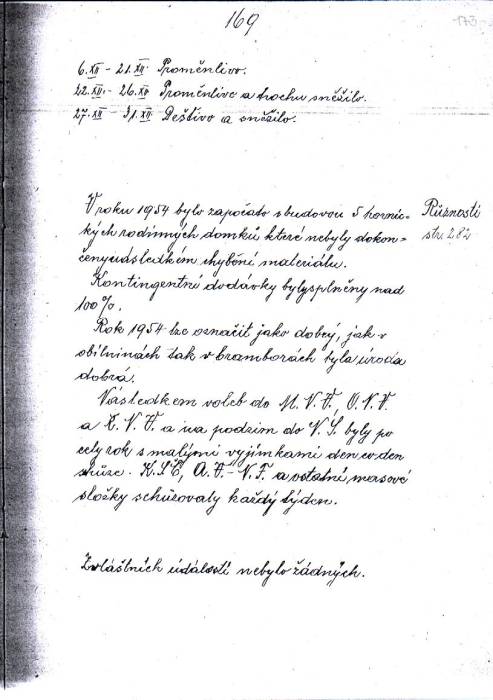 169
173
6.XII - 21.XII. Proměnlivo.
22.XII. - 26.XII Proměnlivo a trochu sněžilo.
27.XII - 31.XII. Deštivo a sněžilo.
V roku 1954 bylo započato s budovou 5 hornic-
kých rodinných domků které nebyly dokon=
čeny následkem chybění materiálu.
Různosti
str. 282
Kontingentní dodávky byly splněny nad
100%.
Rok 1954 lze označit jako dobrý, jak v
obilninách tak v bramborách byla úroda
dobrá.
Následkem voleb do M.N.V., O.N.V.
a K.N.V. a na podzim do N.S. byly po
celý rok s malými vyjímkami den co den
schůze. K.S.Č, A.V.-N.F. a ostatní masové
složky schůzovaly každý týden.
Zvláštních událostí nebylo žádných.